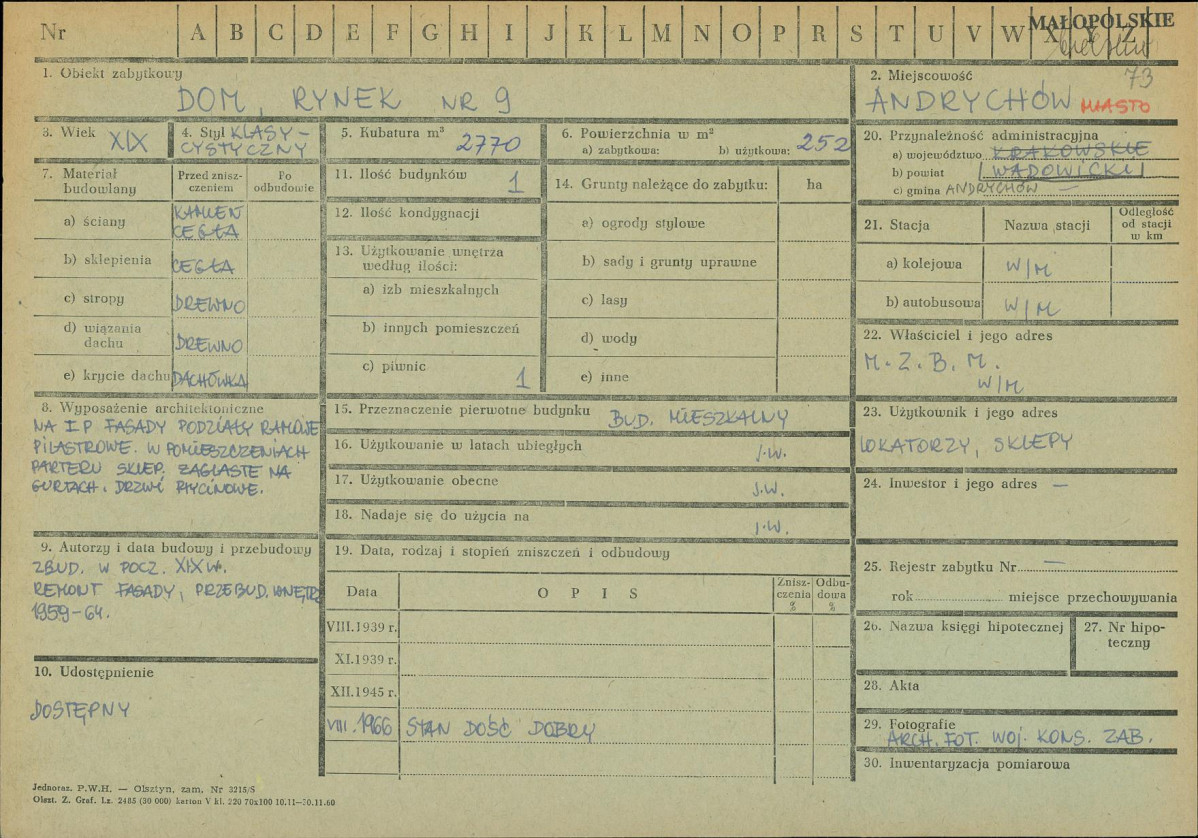 Nr A B C D E F G H I J K L M N O P R S T U V W X Y Z
MAŁOPOLSKIE
73
1. Obiekt zabytkowy
DOM, RYNEK NR 9
2. Miejscowość
ANDRYCHÓW MIASTO
3. Wiek XIX
4. Styl KLASY-
CYSTYCZNY
5. Kubatura m³ 2770
6. Powierzchnia w m²
a) zabytkowa: b) użytkowa: 252
7. Materiał
budowlany
Przed znisz-
czeniem
Po
odbudowie
a) ściany KAMIEŃ
CEGŁA
b) sklepienia CEGŁA
c) stropy DREWNO
d) wiązania
dachu DREWNO
e) krycie dachu DACHÓWKA
8. Wyposażenie architektoniczne
NA I P FASADY PODZIAŁY RAMOWE
PILASTROWE. W POMIESZCZENIACH
PARTERU SKLEP. ŻAGLASTE NA
GURTACH. DRZWI PŁYCINOWE.
9. Autorzy i data budowy i przebudowy
ZBUD. W POCZ. XIX W.
REMONT FASADY, PRZEBUD. WNĘTRZ
1959-64.
10. Udostępnienie
DOSTĘPNY
11. Ilość budynków 1
12. Ilość kondygnacji
13. Użytkowanie wnętrza
według ilości:
a) izb mieszkalnych
b) innych pomieszczeń
c) piwnic 1
14. Grunty należące do zabytku: ha
a) ogrody stylowe
b) sady i grunty uprawne
c) lasy
d) wody
e) inne
15. Przeznaczenie pierwotne budynku BUD. MIESZKALNY
16. Użytkowanie w latach ubiegłych J.W.
17. Użytkowanie obecne J.W.
18. Nadaje się do użycia na J.W.
19. Data, rodzaj i stopień zniszczeń i odbudowy
Data O P I S Znisz-
czenia
% Odbu-
dowa
%
VIII.1939 r.
XI.1939 r.
XII.1945 r.
VIII.1966 STAN DOŚĆ DOBRY
20. Przynależność administracyjna
a) województwo KRAKOWSKIE
b) powiat WADOWICKI
c) gmina ANDRYCHÓW —
21. Stacja Nazwa stacji Odległość
od stacji
w km
a) kolejowa W/M
b) autobusowa W/M
22. Właściciel i jego adres
M. Z. B. M.
W/M
23. Użytkownik i jego adres
LOKATORZY, SKLEPY
24. Inwestor i jego adres —
25. Rejestr zabytku Nr —
rok miejsce przechowywania
26. Nazwa księgi hipotecznej
27. Nr hipo-
teczny
28. Akta
29. Fotografie
ARCH. FOT. WOJ. KONS. ZAB.
30. Inwentaryzacja pomiarowa
Jednoraz. P.W.H. — Olsztyn, zam. Nr 3215/S
Olszt. Z. Graf. Lz. 2485 (30 000) karton V kl. 220 70x100 10.11—30.11.60